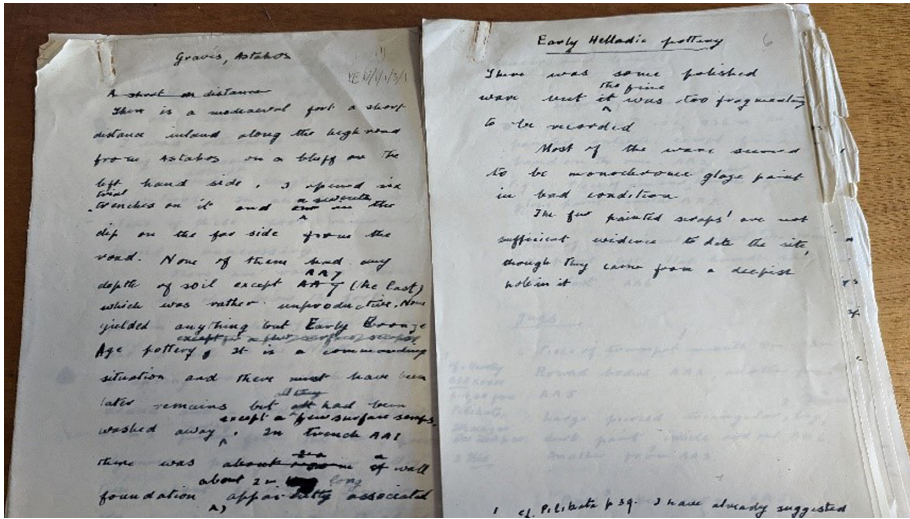 Gravis, Astakos
A short distance
There is a mediaeval fort a short
distance inland along the high road
from Astakos on a bluff on the
left hand side. I opened six
trial
trenches on it and a seventh in the
dip on the far side from the
road. None of them had any
AA7
depth of soil except AA7 (the last)
which was rather unproductive. None
yielded anything but Early Bronze
except for a few surface scraps
Age pottery, It is a commanding
situation and there must have been
all they
later remains but had been
except a few surface scraps
washed away. In trench AA1
there was about of wall
about 2 m long
foundation associated
Early Helladic pottery
6
There was some polished
the fine
ware but it was too fragmentary
to be recorded
Most of the ware seemed
to be monochrome glaze paint
in bad condition
The few painted scraps¹ are not
sufficient evidence to date the site,
though they came from a deepish
hole in it
Jugs
1 cf. Pilikata p 29. I have already suggested